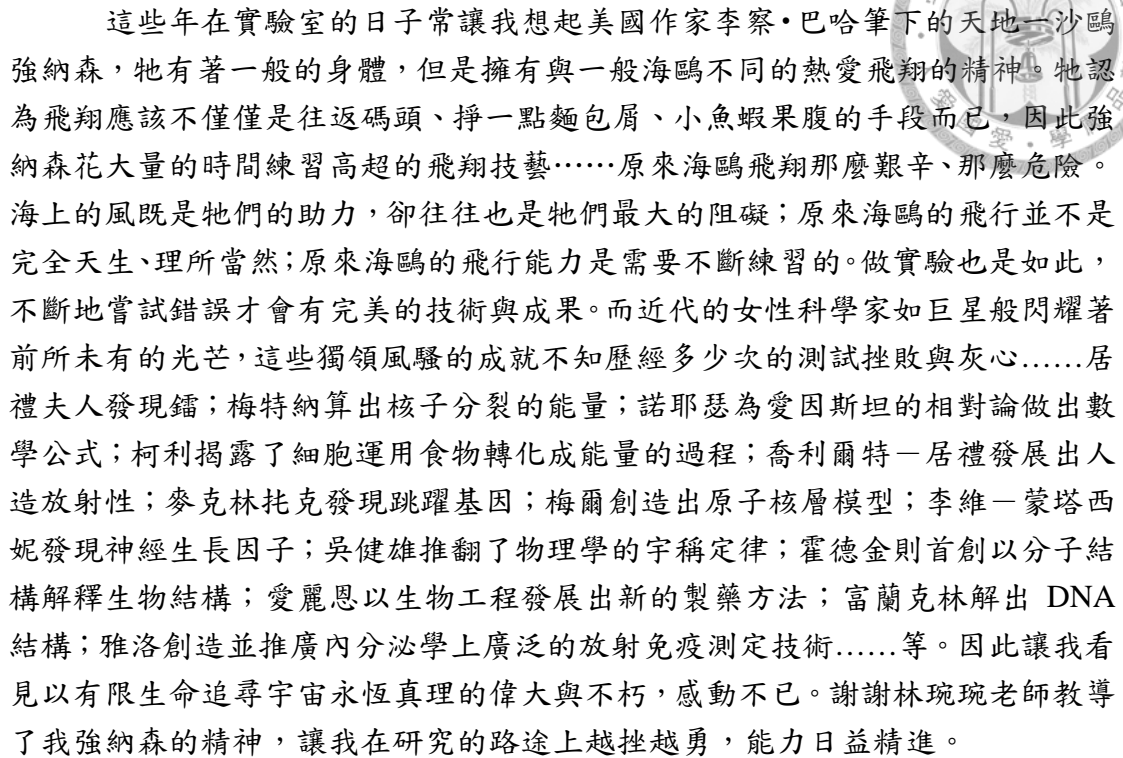 這些年在實驗室的日子常讓我想起美國作家李察•巴哈筆下的天地一沙鷗
強納森，牠有著一般的身體，但是擁有與一般海鷗不同的熱愛飛翔的精神。牠認
為飛翔應該不僅僅是往返碼頭、掙一點麵包屑、小魚蝦果腹的手段而已，因此強
納森花大量的時間練習高超的飛翔技藝……原來海鷗飛翔那麼艱辛、那麼危險。
海上的風既是牠們的助力，卻往往也是牠們最大的阻礙；原來海鷗的飛行並不是
完全天生、理所當然；原來海鷗的飛行能力是需要不斷練習的。做實驗也是如此，
不斷地嘗試錯誤才會有完美的技術與成果。而近代的女性科學家如巨星般閃耀著
前所未有的光芒，這些獨領風騷的成就不知歷經多少次的測試挫敗與灰心……居
禮夫人發現鐳；梅特納算出核子分裂的能量；諾耶瑟為愛因斯坦的相對論做出數
學公式；柯利揭露了細胞運用食物轉化成能量的過程；喬利爾特－居禮發展出人
造放射性；麥克林托克發現跳躍基因；梅爾創造出原子核層模型；李維－蒙塔西
妮發現神經生長因子；吳健雄推翻了物理學的宇稱定律；霍德金則首創以分子結
構解釋生物結構；愛麗恩以生物工程發展出新的製藥方法；富蘭克林解出 DNA
結構；雅洛創造並推廣內分泌學上廣泛的放射免疫測定技術……等。因此讓我看
見以有限生命追尋宇宙永恆真理的偉大與不朽，感動不已。謝謝林琬琬老師教導
了我強納森的精神，讓我在研究的路途上越挫越勇，能力日益精進。